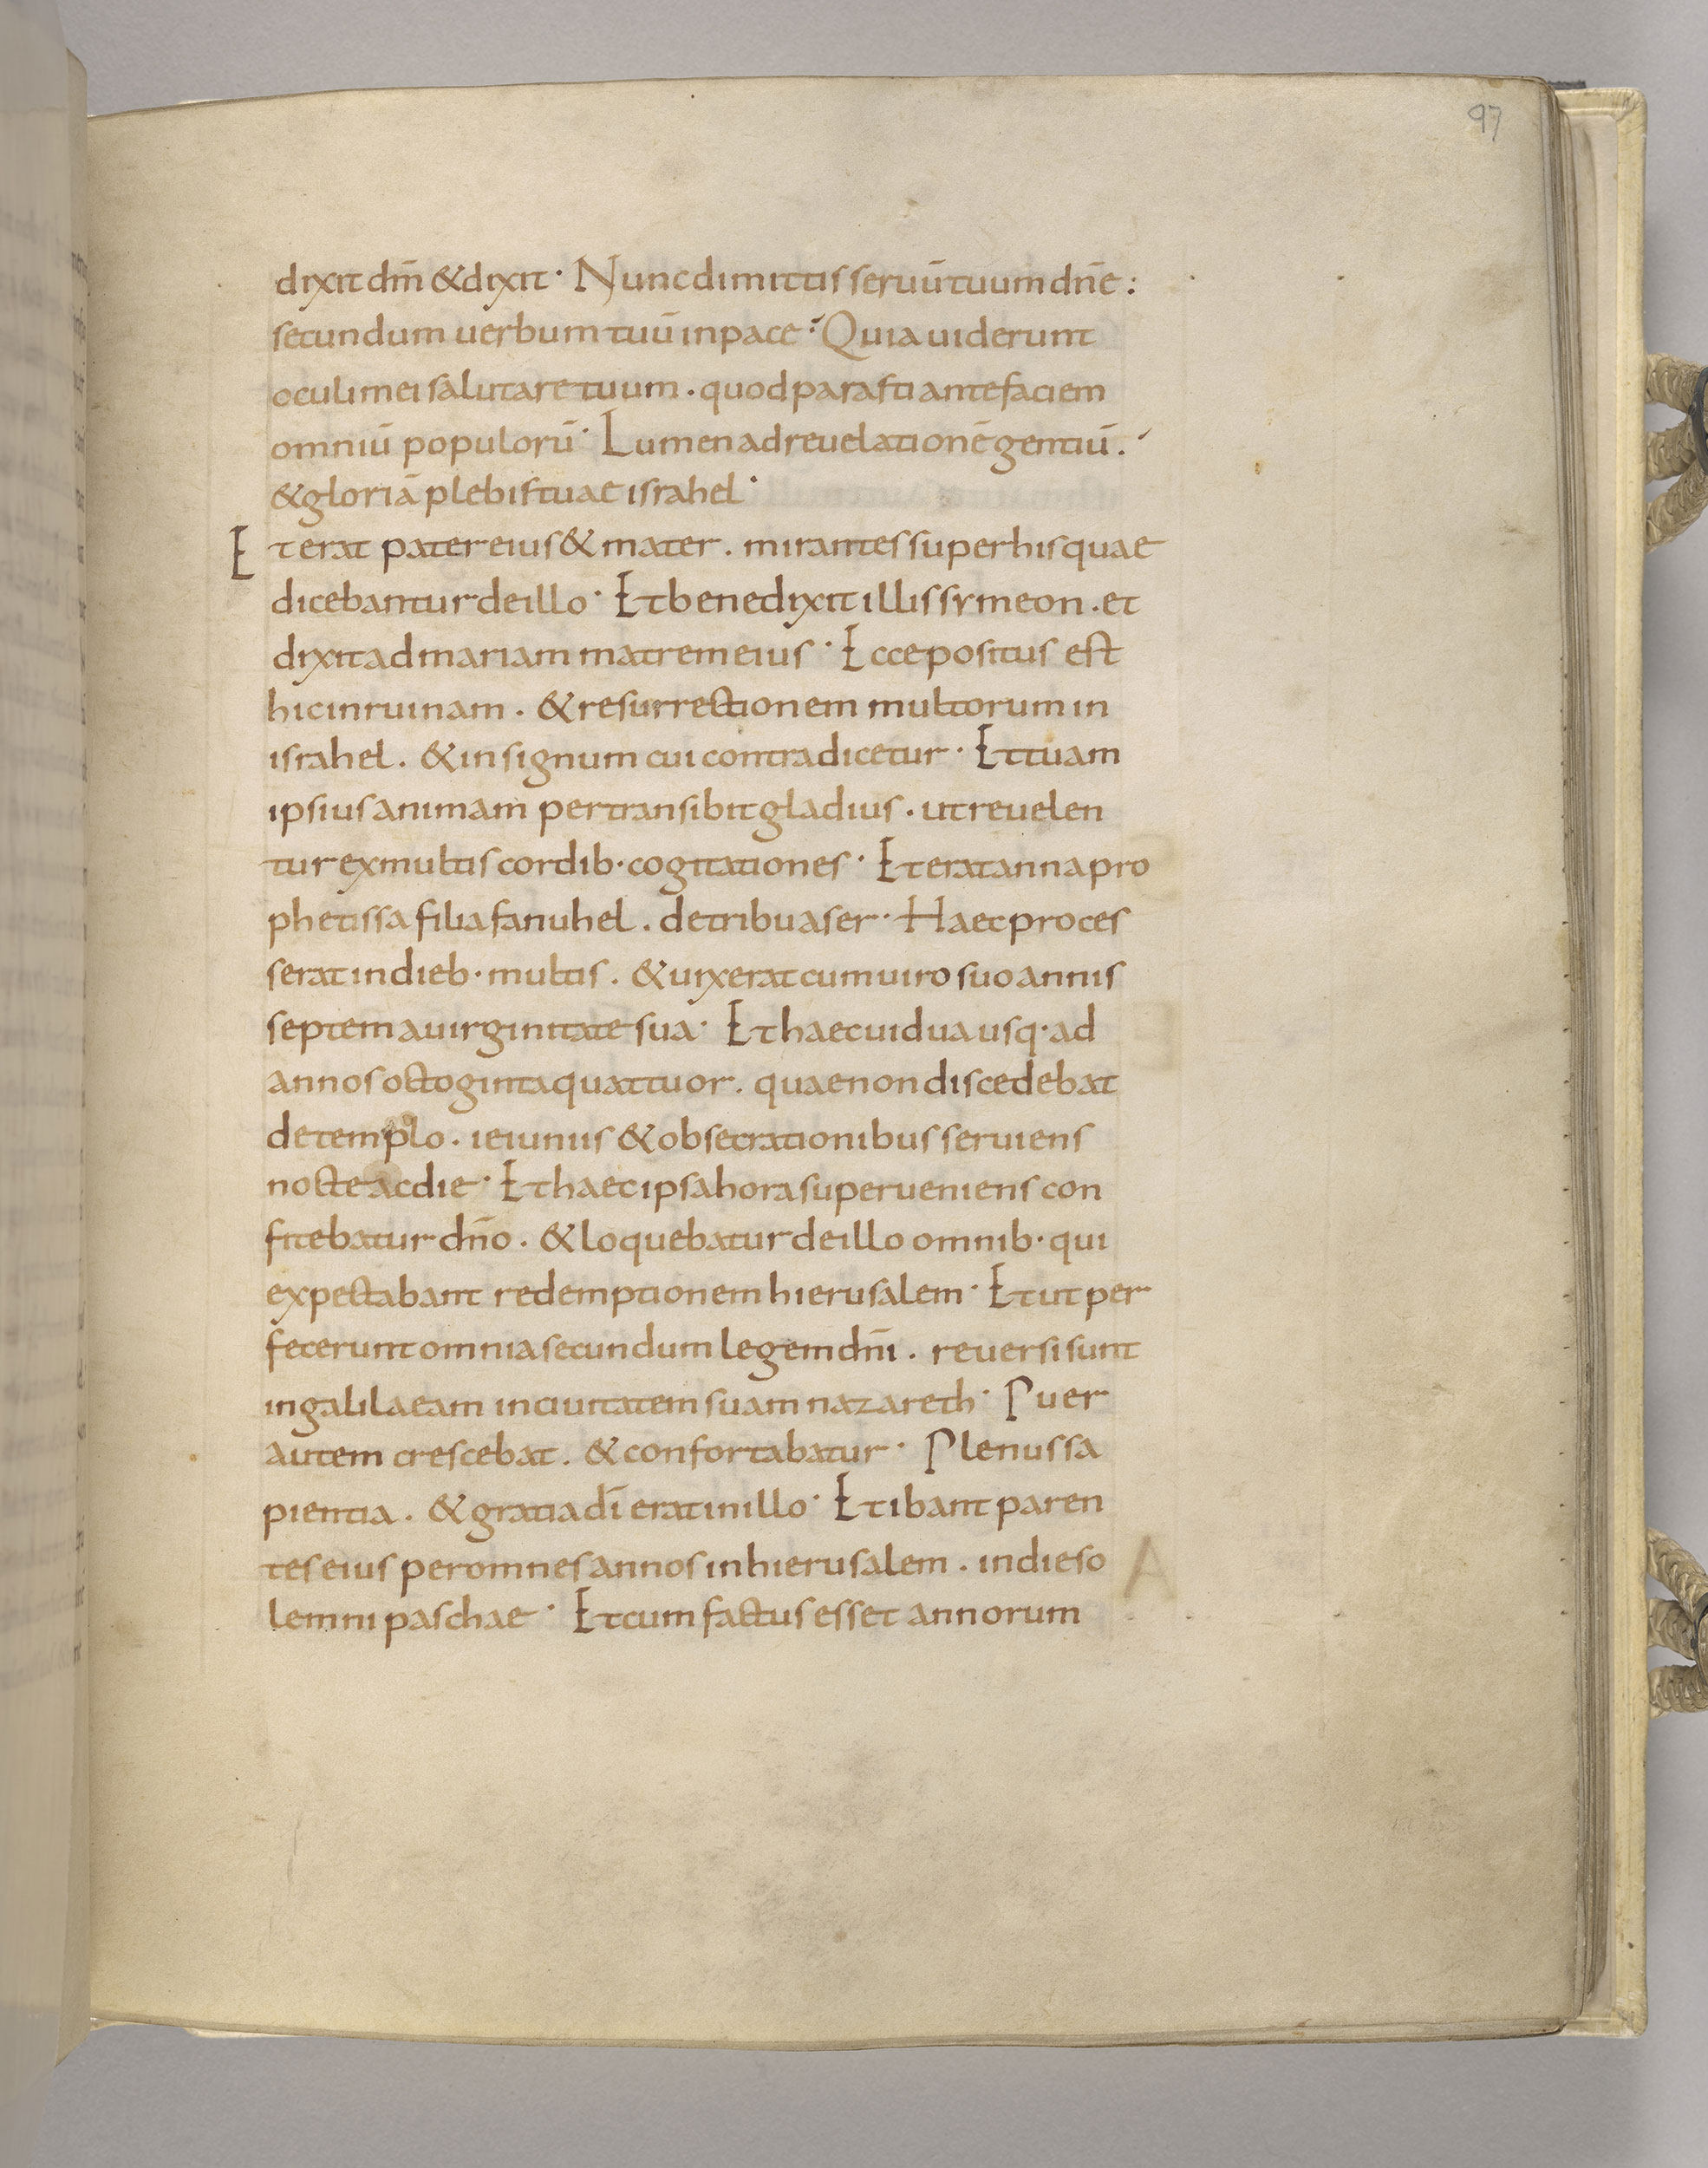 97
dixit dm̄ & dixit· Nunc dimittis seruū tuum dn̄e :
secundum uerbum tuū in pace : Quia uiderunt
oculi mei salutare tuum . quod parasti ante faciem
omniū populorū· Lumen ad reuelationē gentiū .
& gloriā plebis tuae israhel·
Et erat pater eius & mater . mirantes super his quae
dicebantur de illo· Et benedixit illis symeon . et
dixit ad mariam matrem eius · Ecce positus est
hic in ruinam . & resurrectionem multorum in
israhel . & in signum cui contradicetur · Et tuam
ipsius animam pertransibit gladius . ut reuelen
tur ex multis cordib· cogitationes · Et erat anna pro
phetissa filia fanuhel . de tribu aser · Haec proces
serat in dieb· multis . & uixerat cum uiro suo annis
septem a uirginitate sua · Et haec uidua usq· ad
annos octoginta quattuor . quae non discedebat
de templo . ieiuniis & obsecrationibus seruiens
nocte ac die · Et haec ipsa hora superueniens con
fitebatur dn̄o . & loquebatur de illo omnib· qui
expectabant redemptionem hierusalem · Et ut per
fecerunt omnia secundum legem dn̄i . reuersi sunt
in galilaeam in ciuitatem suam nazareth · Puer
autem crescebat . & confortabatur · Plenus sa
pientia . & gratia dī erat in illo · Et ibant paren
tes eius per omnes annos in hierusalem . in die so A
lemni paschae · Et cum factus esset annorum